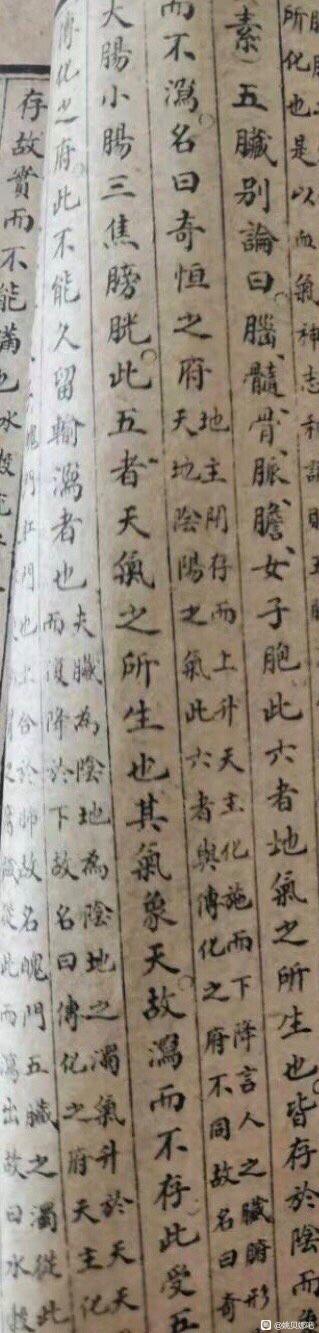 所化也是以血氣神志和調
素）五臟别論曰腦、髓、骨、脈、膽、女子胞此六者地氣之所生也皆存於陰而
而不瀉名曰奇恒之府
地主閉存而上升天主化施而下降言人之臟腑形
天地陰陽之氣此六者與傳化之府不同故名曰奇
大腸小腸三焦膀胱此五者天氣之所生也其氣象天故瀉而不存此受五
傳化之府此不能久留輸瀉者也
夫臟為陰地為陰地之濁氣升於天天
而復降於下故名曰傳化之府天主化
魄門肛門也上合於肺故名魄門五臟之濁從此
從此而瀉出故曰水
存故實而不能滿也水穀
@姚贝娜吧